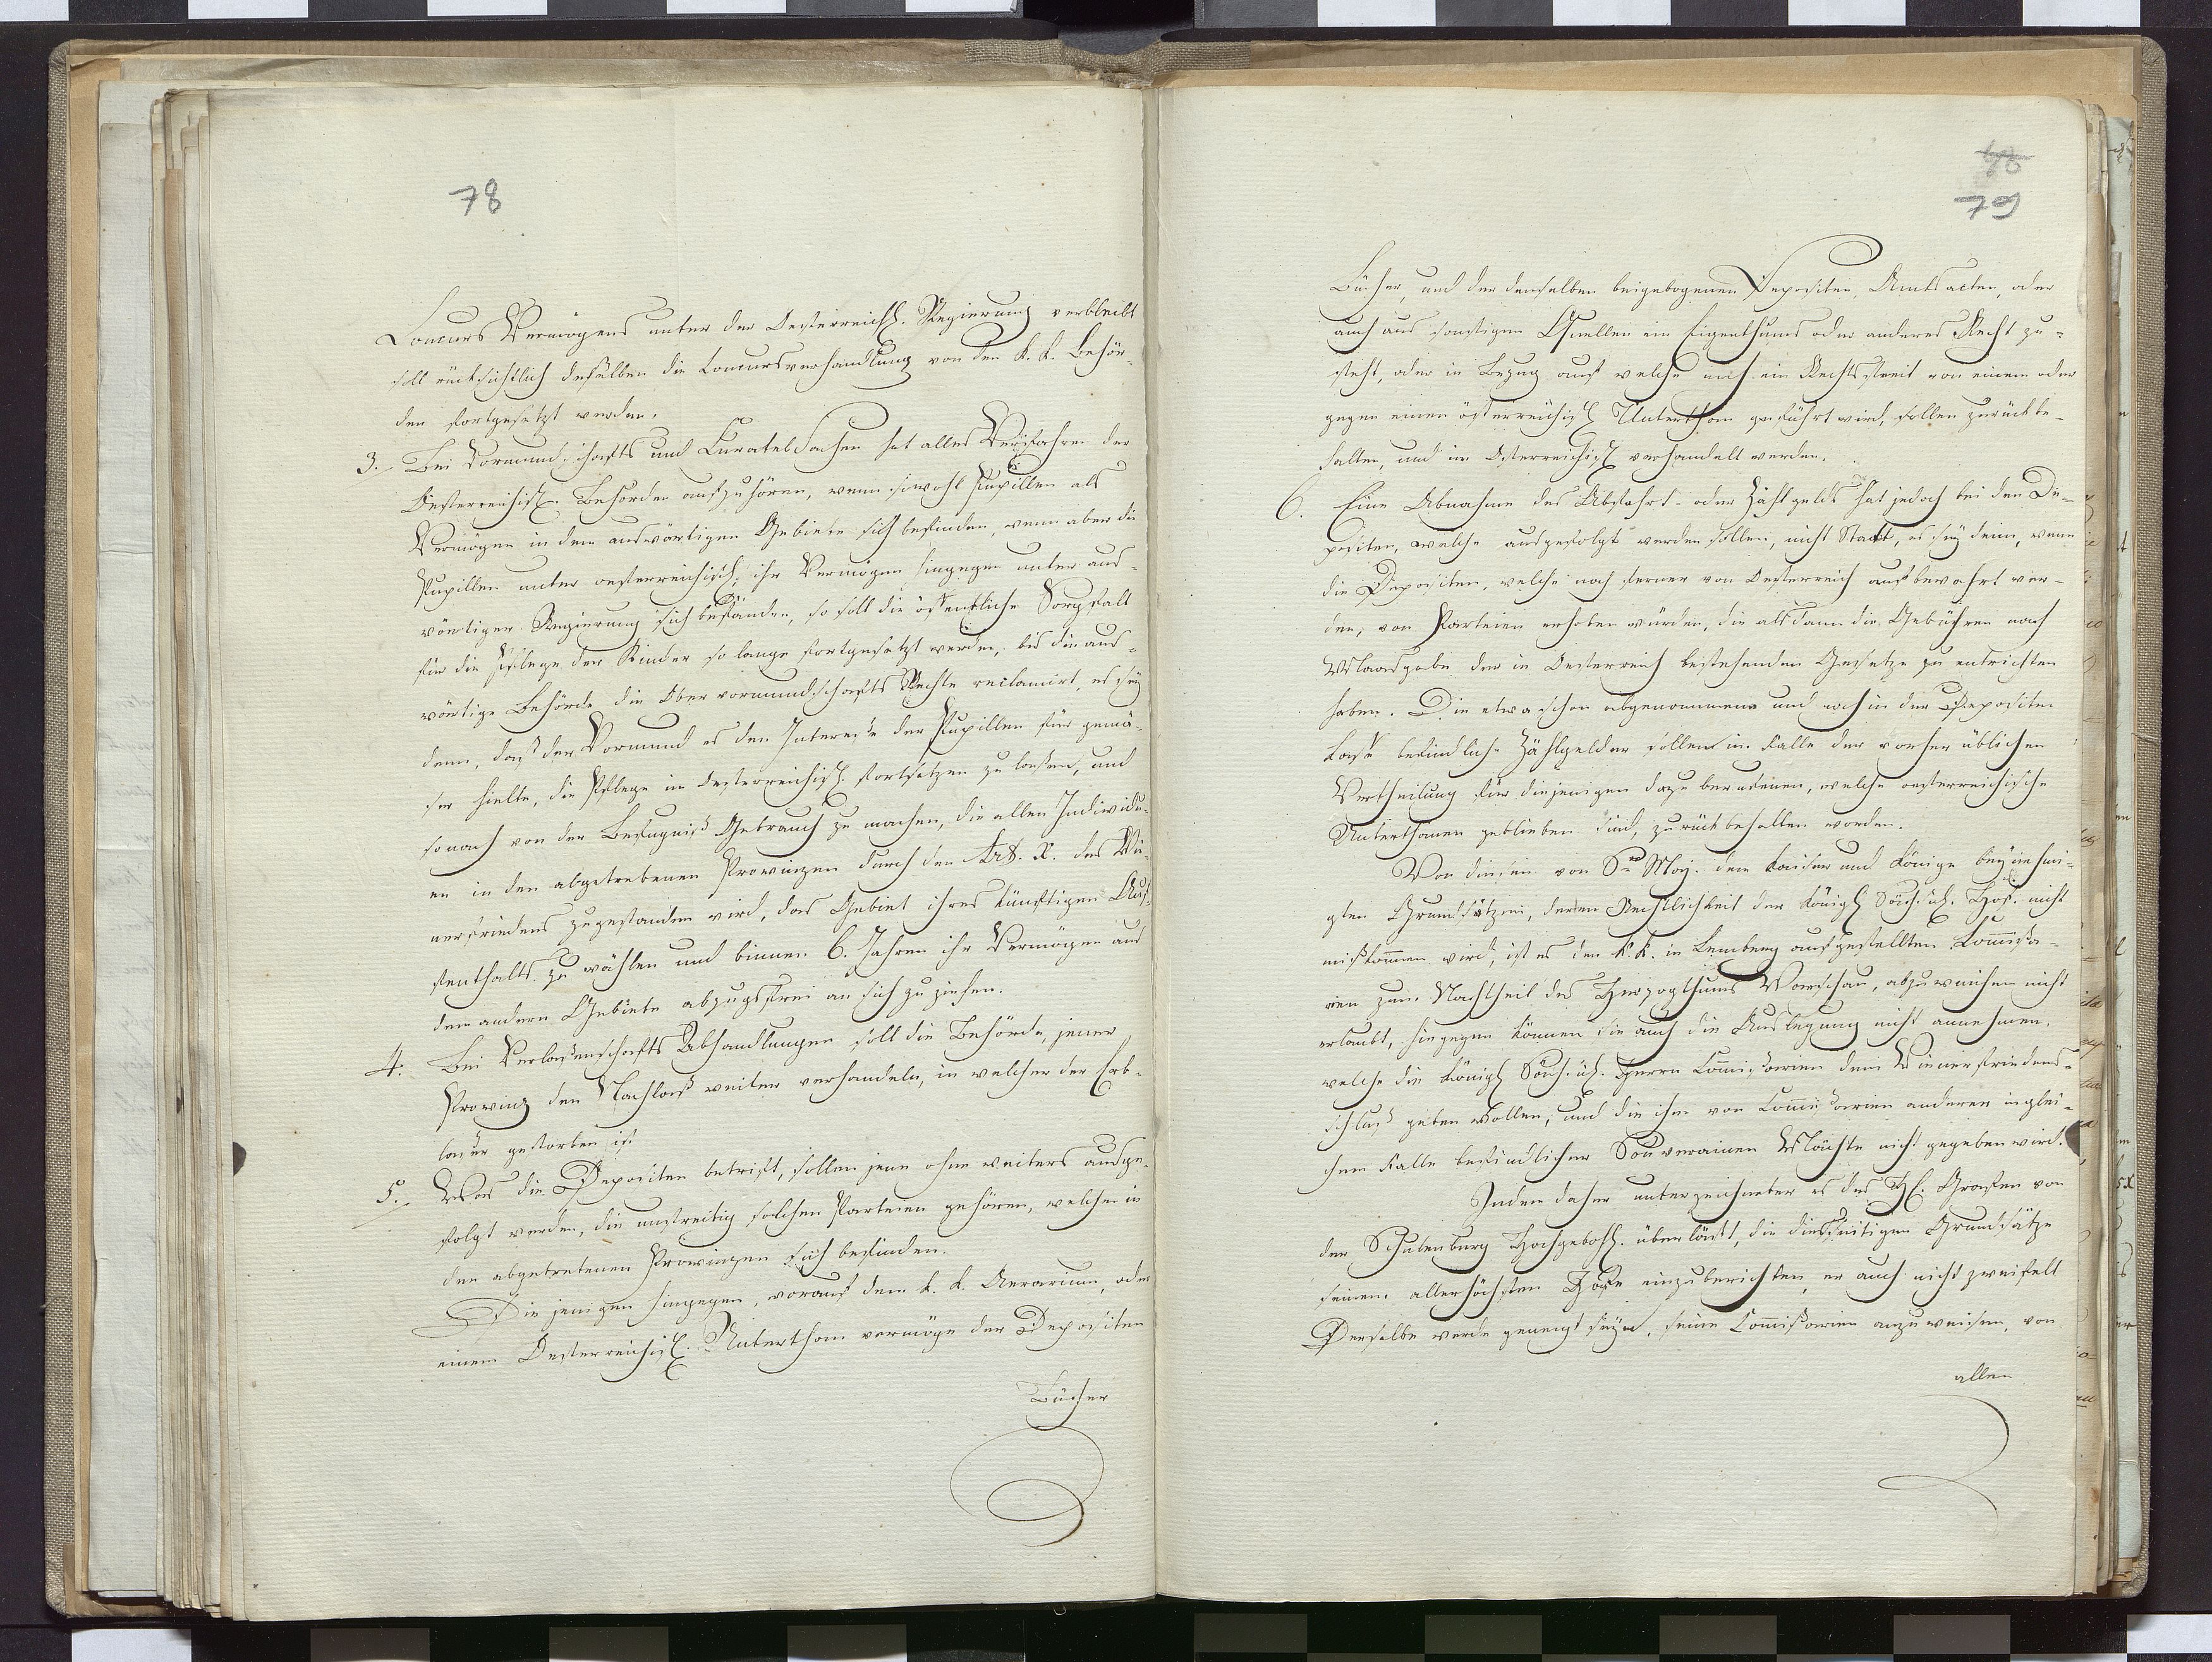 78
Concurs Vermögens unter der Oesterreich. Regierung verbleibt
soll rücksichtlich deßelben die Concursverhandlung von den k. k. Behör-
den fortgesetzt werden.
3. Bei Vormundschafts und Curatel Sachen hat alles Verfahren der
Oesterreichisch. Behörden aufzuhören, wenn sowohl Pupillen als
Vermögen in dem auswärtigen Gebiete sich befinden, wenn aber die
Pupillen unter oesterreichisch, ihr Vermögen hingegen unter aus-
wärtiger Regierung sich befänden, so soll die öffentliche Sorgfalt
für die Pflege der Kinder so lange fortgesetzt werden, bis die aus-
wärtige Behörde die Obervormundschafts Rechte reclamirt, es sey
denn, daß der Vormund es dem Interesse der Pupillen für gemä-
ser hielte, die Pflege im Oesterreichisch. fortsetzen zu laßen, und
sonach von der Befugniß Gebrauch zu machen, die allen Individu-
en in den abgetretenen Provinzen durch den Art. X. des Wie-
nerfriedens zugestanden wird, das Gebiet ihres künftigen Auf-
fenthalts zu wählen und binnen 6. Jahren ihr Vermögen aus
dem andern Gebiete abzugsfrei an sich zu ziehen.
4. Bei Verlaßenschafts Abhandlungen soll die Behörde, jener
Provinz den Nachlaß weiter verhandeln, in welcher der Erb-
laßer gestorben ist
5. Was die Depositen betrift, sollen jene ohne weiters ausge-
folgt werden, die unstreitig solchen Parteien gehören, welche in
den abgetretenen Provinzen sich befinden.
Die jenigen hingegen, worauf dem k. k. Aerarium, oder
einem Oesterreichisch. Unterthan vermöge der Depositen
Bücher
79
Bücher, und der denselben beigebogenen Depositen, Amtsacten, oder
auch aus sonstigen Quellen ein Eigenthums oder anderes Recht zu-
steht, oder in Bezug auf welche auch ein Rechtsstreit von einem oder
gegen einen österreichisch Unterthan geführt wird, sollen zurückbe-
halten, und im Österreichisch verhandelt werden.
6. Eine Abnahme des Abfahrt- oder Zählgelds hat jedoch bei den De-
positen, welche ausgefolgt werden sollen, nicht Statt, es sey denn, wenn
die Depositen, welche noch ferner von Oesterreich aufbewahrt wer-
den, von Parteien erhoben würden, die alsdann die Gebühren nach
Maasgabe der in Oesterreich bestehenden Gesetze zu entrichten
haben. Die etwa schon abgenommene und noch in der Depositen
Casse befindliche Zählgelder sollen im Falle der vorher üblichen
Vertheilung für diejenigen dazu berufenen, welche oesterreichische
Unterthanen geblieben sind, zurückbehalten werden.
Von diesen von Sr. Maj. dem Kaiser und Könige
gten Grundsätzen, deren Rechtlichkeit der Königl. Sächsisch. Hof. nicht
mißkennen wird, ist es den k. k. in Lemberg aufgestellten Commissa-
rien zum Nachtheil des Herzogthums Warschau, abzuweichen nicht
erlaubt, hingegen können sie auch die Auslegung nicht annehmen,
welche die Königl. Sächsisch. Herrn Commissarien dem Wienerfriedens-
schluß geben wollen, und die ihm von Commissarien anderer in glei-
chem Falle befindlicher Souverainen Mächte nicht gegeben wird.
Indem daher unterzeichneter es des H. Grafen von
der Schulenburg Hochgeboh. überläßt, die diesseitigen Grundsätze
seinem allerhöchsten Hofe einzuberichten, er auch nicht zweifelt
Derselbe werde geneigt seyn, seine Commissarien anzuweisen, von
allen